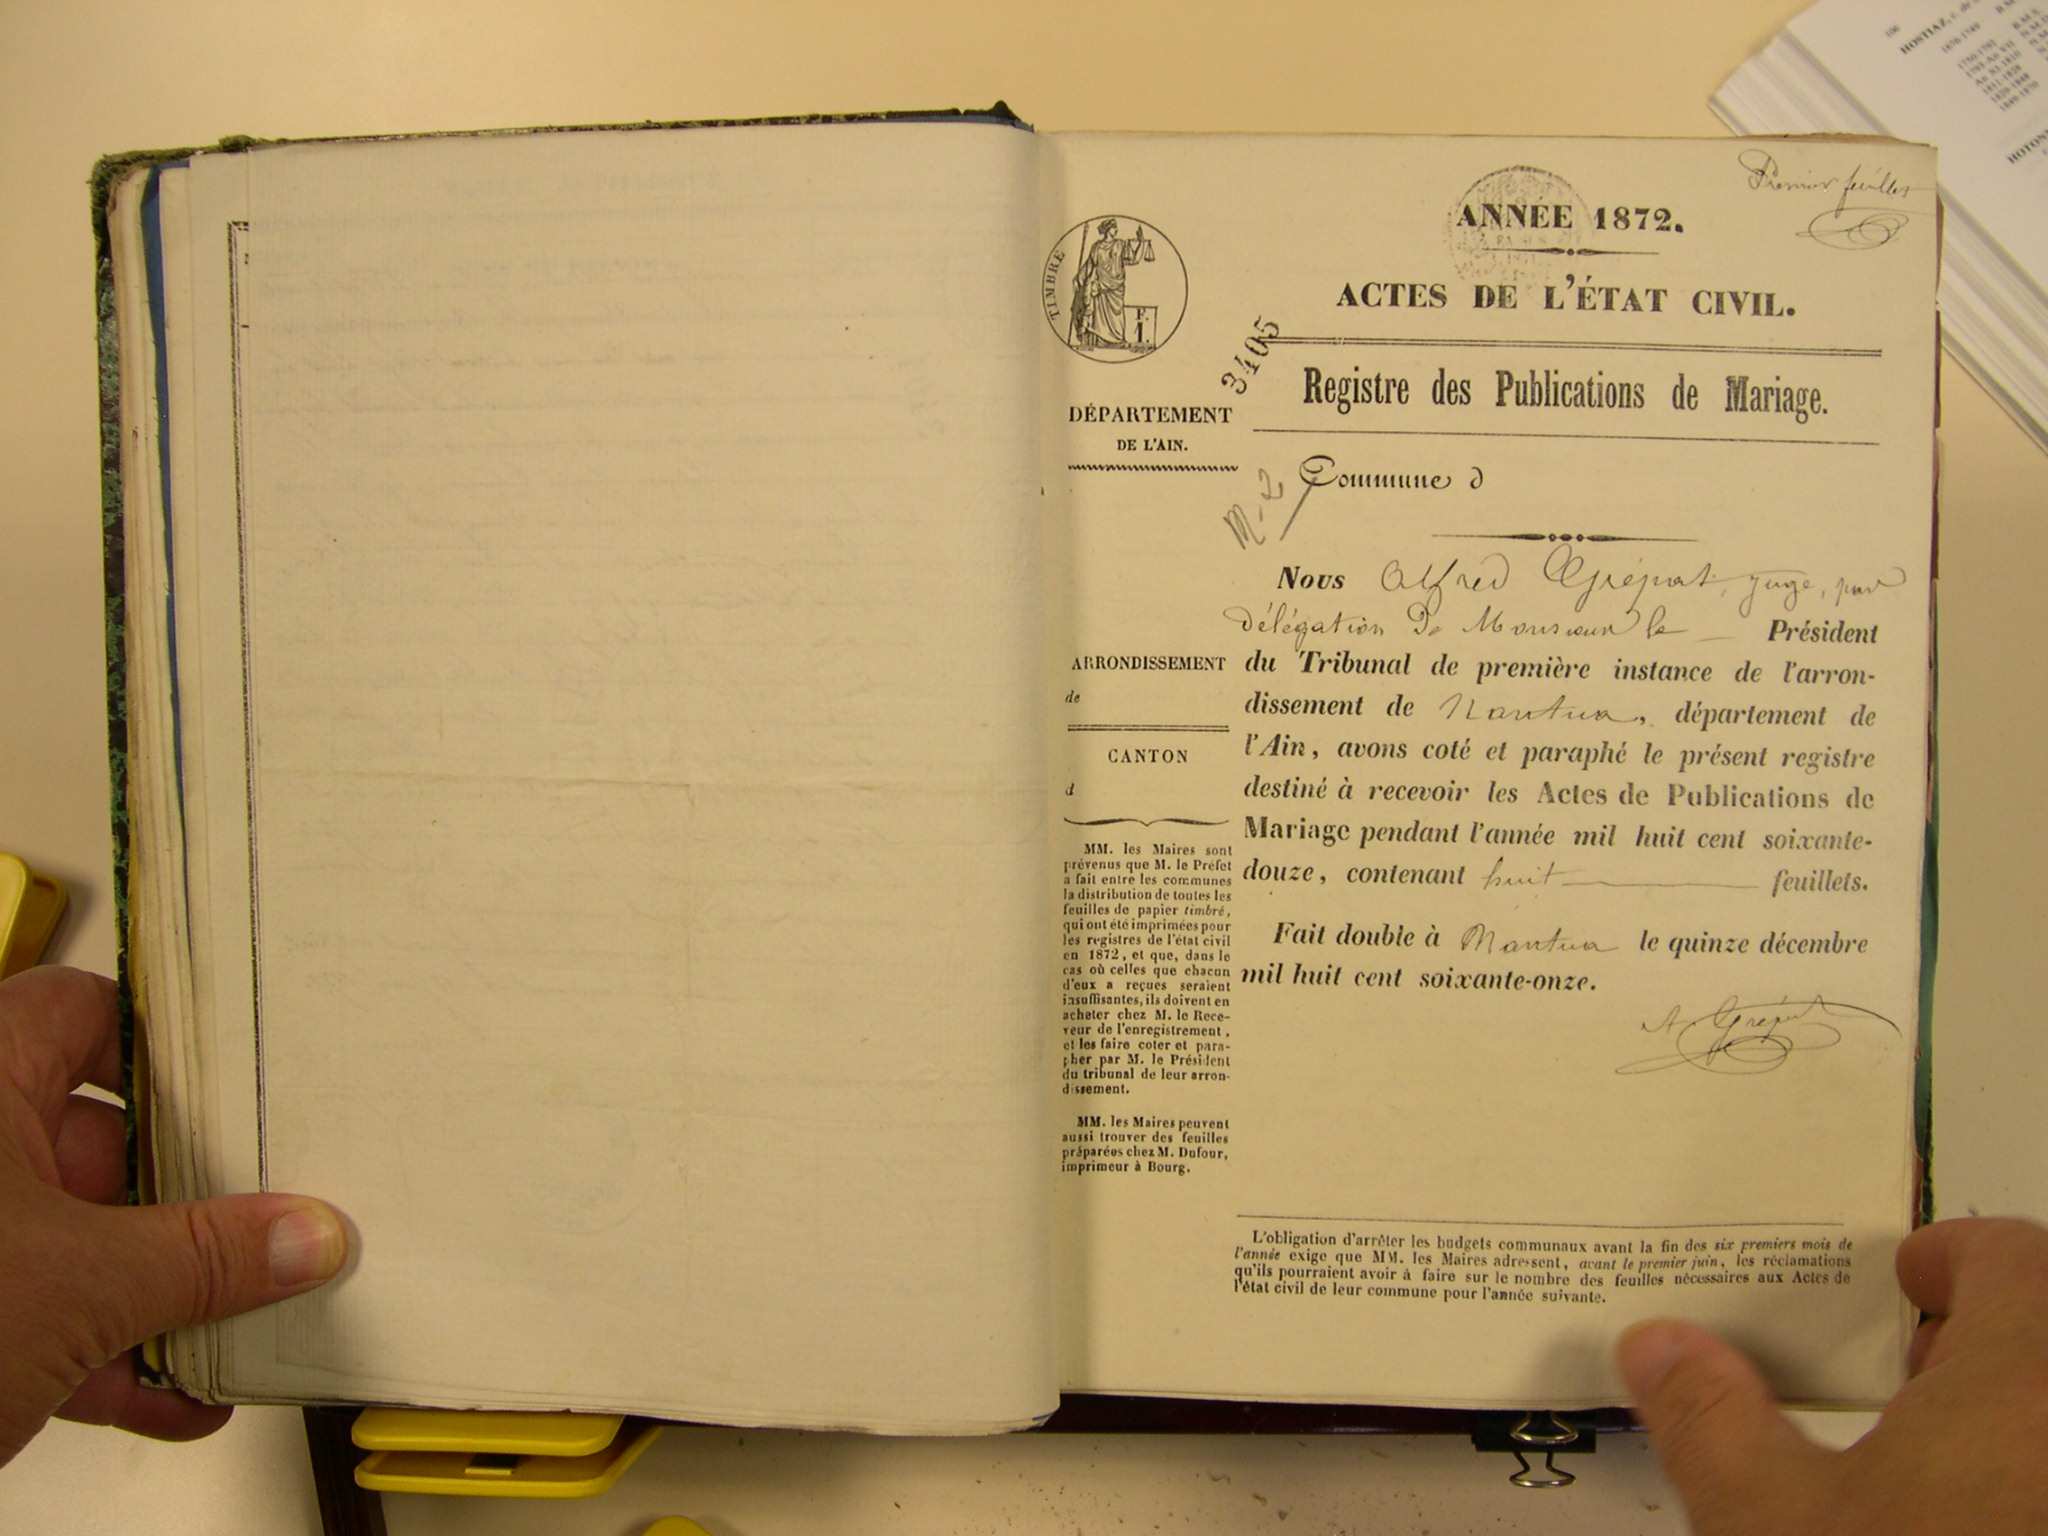 Premier feuillet
ANNÉE 1872.
ACTES DE L'ÉTAT CIVIL.
TIMBRE
F.
1.
3405
Registre des Publications de Mariage.
DÉPARTEMENT
DE L'AIN.
M-2
Commune d
Nous Alfred Grépat, juge, par
délégation de Monsieur le Président
du Tribunal de première instance de l'arron-
dissement de Nantua, département de
l'Ain, avons coté et paraphé le présent registre
destiné à recevoir les Actes de Publications de
Mariage pendant l'année mil huit cent soixante-
douze, contenant huit feuillets.
Fait double à Nantua le quinze décembre
mil huit cent soixante-onze.
A. Grépat
ARRONDISSEMENT
de
CANTON
d
MM. les Maires sont
prévenus que M. le Préfet
a fait entre les communes
la distribution de toutes les
feuilles de papier timbré,
qui ont été imprimées pour
les registres de l'état civil
en 1872, et que, dans le
cas où celles que chacun
d'eux a reçues seraient
insuffisantes, ils doivent en
acheter chez M. le Rece-
veur de l'enregistrement,
et les faire coter et para-
pher par M. le Président
du tribunal de leur arron-
dissement.
MM. les Maires peuvent
aussi trouver des feuilles
préparées chez M. Dufour,
imprimeur à Bourg.
L'obligation d'arrêter les budgets communaux avant la fin des six premiers mois de
l'année exige que MM. les Maires adressent, avant le premier juin, les réclamations
qu'ils pourraient avoir à faire sur le nombre des feuilles nécessaires aux Actes de
l'état civil de leur commune pour l'année suivante.
106
HOSTIAZ, c. de
1793-An VII
An XI-1810
1811-1828
1829-1848
1849-1870